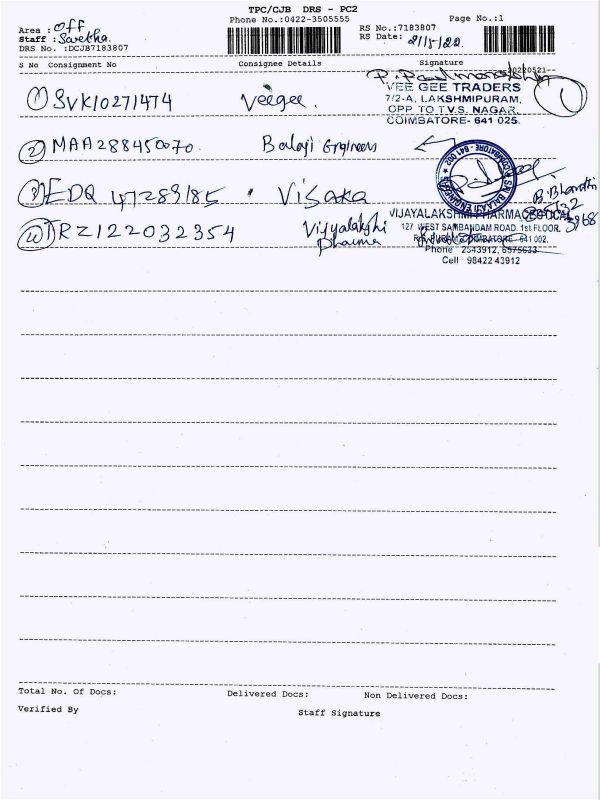 TPC/CJB DRS - PC2
Phone No.:0422-3505555
Page No.:1
Area : Off
Staff :
DRS No. :DCJB7183807
RS No.:7183807
RS Date: 21/5/22
S No Consignment No Consignee Details Signature
20220521--
1 SVK10271474 Veegee.
VEE GEE TRADERS
7/2-A, LAKSHMIPURAM,
OPP. TO T.V.S. NAGAR,
COIMBATORE- 641 025.
2 MAA288450070. Balaji Engineers
3 EDQ 47289185 Visaka
B.Bharathi
4 TRZ122032354 Vijyalakshi
Pharma
VIJAYALAKSHMI PHARMACEUTICAL
127 WEST SAMBANDAM ROAD. 1st FLOOR.
641 002.
Phone : 2543912,
Cell : 98422 43912
Total No. Of Docs: Delivered Docs: Non Delivered Docs:
Verified By Staff Signature